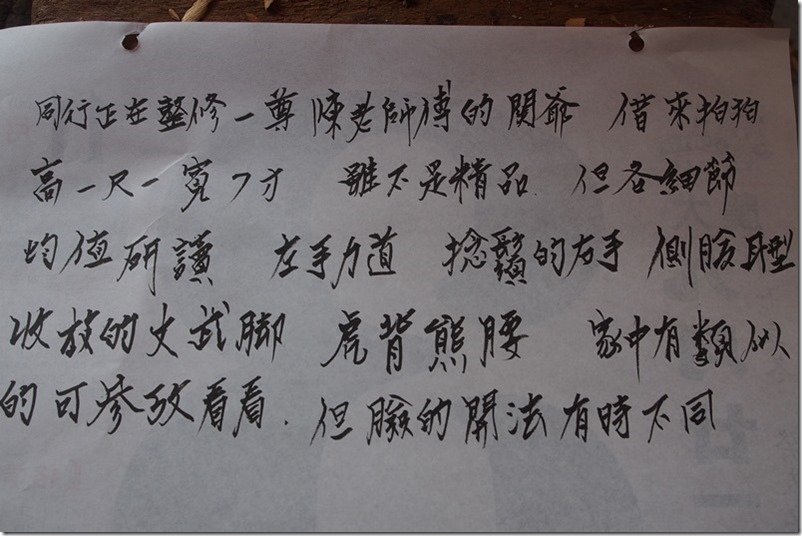 同行正在整修一尊陳老師傅的関爺 借來拍拍
高一尺一寬7寸 雖不是精品. 但各細節
均值研讀 左手力道 捻鬚的右手 側臉耳型
收放的文武脚 虎背熊腰 家中有類似
的可參攷看看. 但臉的開法有時不同